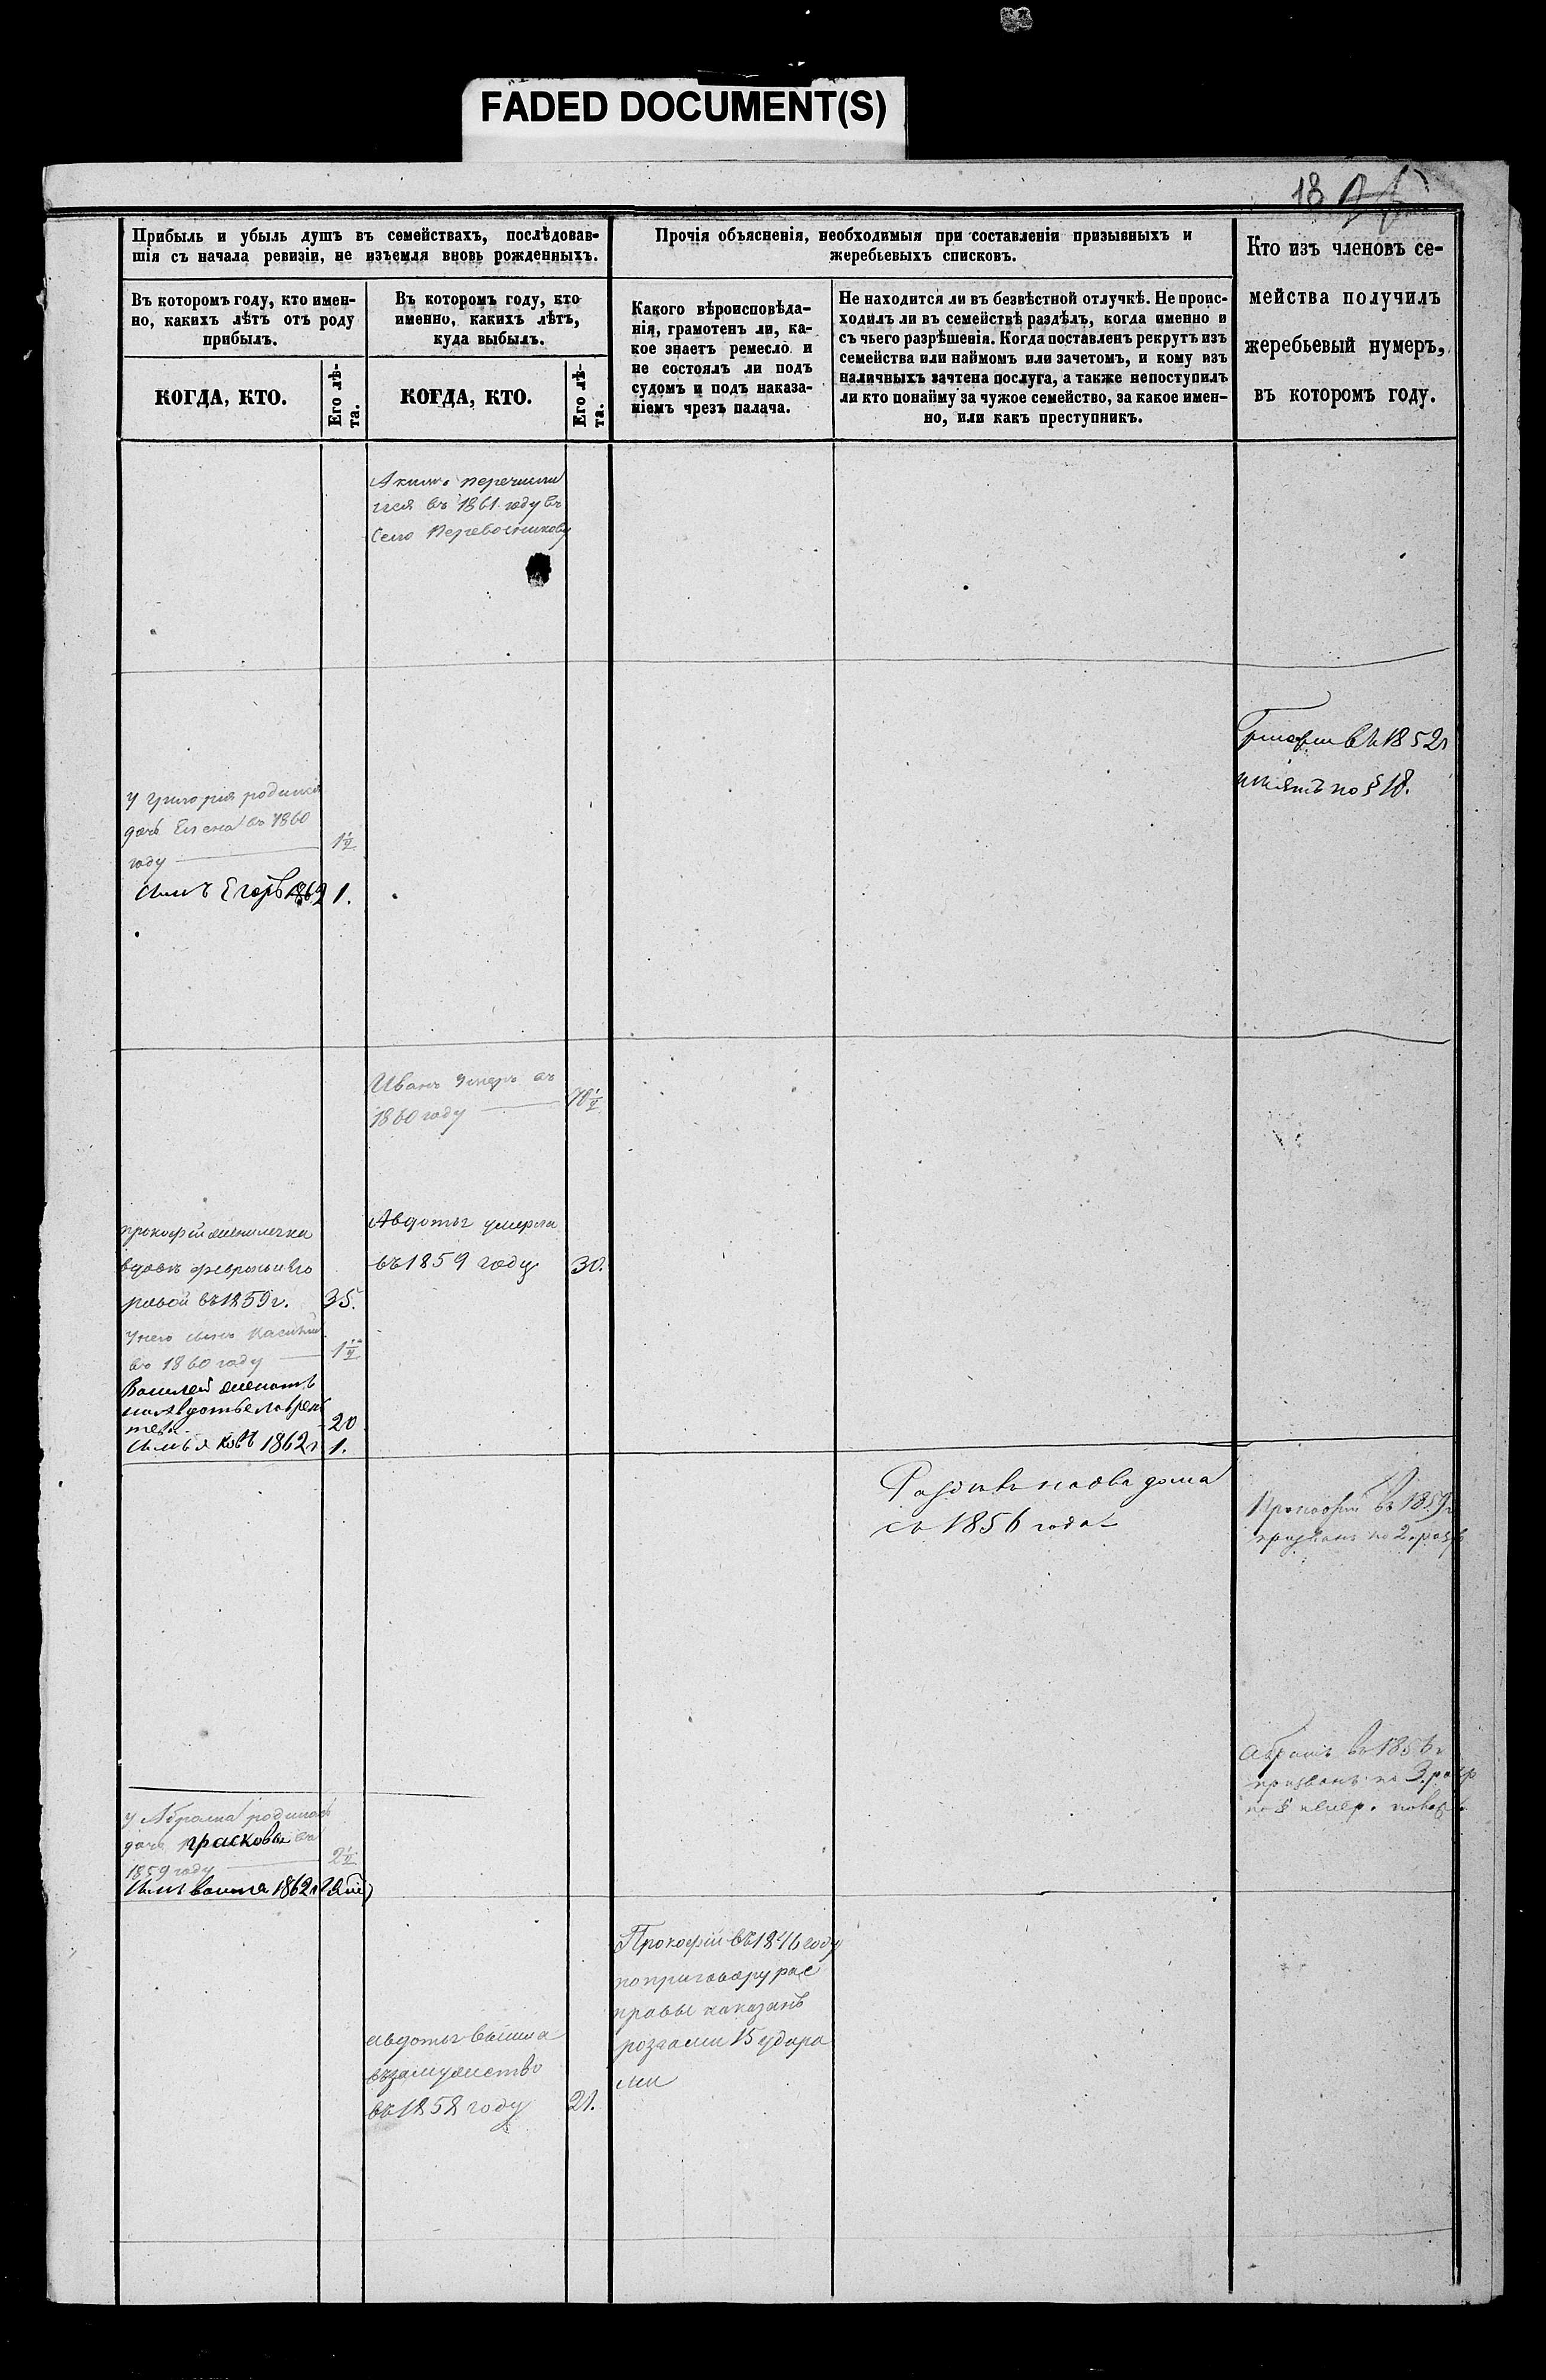 FADED DOCUMENT(S)
18
Прибыль и убыль душъ въ семействахъ, послѣдовав-
шія съ начала ревизіи, не изъемля вновь рожденныхъ.
Прочія объясненія, необходимыя при составленіи призывныхъ и
жеребьевыхъ списковъ.
Кто изъ членовъ се-
мейства получилъ
жеребьевый нумеръ,
въ которомъ году.
Въ которомъ году, кто имен-
но, какихъ лѣтъ отъ роду
прибылъ.
Въ которомъ году, кто
именно, какихъ лѣтъ,
куда выбылъ.
Какого вѣроисповѣда-
нія, грамотенъ ли, ка-
кое знаетъ ремесло и
не состоялъ ли подъ
судомъ и подъ наказа-
ніемъ чрезъ палача.
Не находится ли въ безвѣстной отлучкѣ. Не проис-
ходилъ ли въ семействѣ раздѣлъ, когда именно и
съ чьего разрѣшенія. Когда поставленъ рекрутъ изъ
семейства или наймомъ или зачетомъ, и кому изъ
наличныхъ зачтена послуга, а также непоступилъ
ли кто понайму за чужое семейство, за какое имен-
но, или какъ преступникъ.
КОГДА, КТО.
Его лѣ-
та.
КОГДА, КТО.
Его лѣ-
та.
Акимъ перечисли
лся въ 1861 году въ
Село
въ 1852г
по § 18.
У Григорія родилася
дочь Елена въ 1860
году
1½
сынъ Егоръ 1862 1.
Иванъ умеръ въ
1860 году
70½
Авдотья умерла
въ 1859 году 30.
прокофій женился на
вдовѣ февроньи Его
ровой въ 1859г. 35.
У него сынъ
въ 1860 году 1½
Василей женатъ
на Авдотье лаврен
тева 20
сынъ яковъ 1862г 1.
Раздѣлъ на два дома
съ 1856 года
Прокофій въ 1859г
призванъ по 2. разр
Абрамъ въ 1856г
призванъ по 3. разр
У Абрама родилась
дочь прасковья въ
1859 году 2½
сынъ 1862г
Прокофій въ 1846 году
по приговору рас
правы наказанъ
розгами 15 удара
ми
авдотья вышла
въ замужество
въ 1858 году 21.